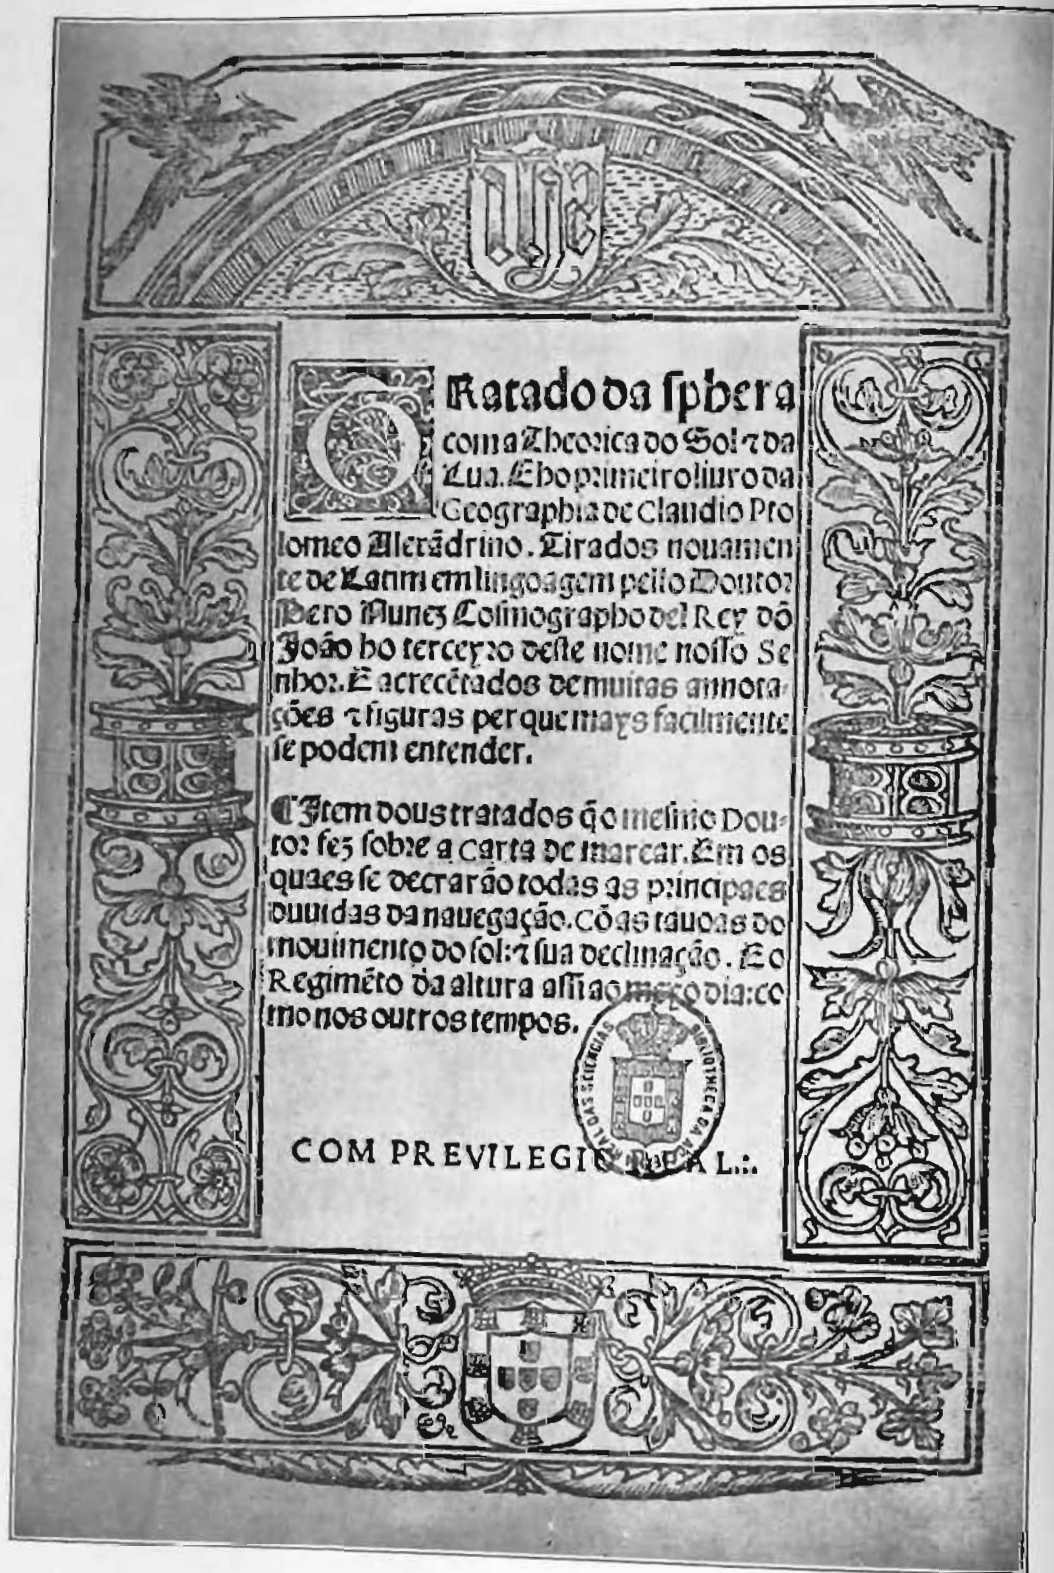 yhs
TRatado da sphera
com a Theorica do Sol ⁊ da
Lua. E ho primeiro liuro da
Geographia de Claudio Pto
lomeo Alexãdrino. Tirados nouamen
te de Latim em lingoagem pello Doutor
Pero Nunez Cosmographo del Rey dõ
João ho terceyro deste nome nosso Se
nhor. E acrecẽtados de muitas annota
ções ⁊ figuras per que mays facilmente
se podem entender.
¶ Item dous tratados q̃ o mesmo Dou-
tor fez sobre a carta de marear. Em os
quaes se decrarão todas as principaes
duuidas da nauegação. Cõ as tauoas do
mouimento do sol: ⁊ sua declinação. E o
Regimẽto da altura assi ao meyo dia: co
mo nos outros tempos.
COM PREVILEGIO REAL.:.
BIBLIOTHECA DA REAL DAS SCIENCIAS